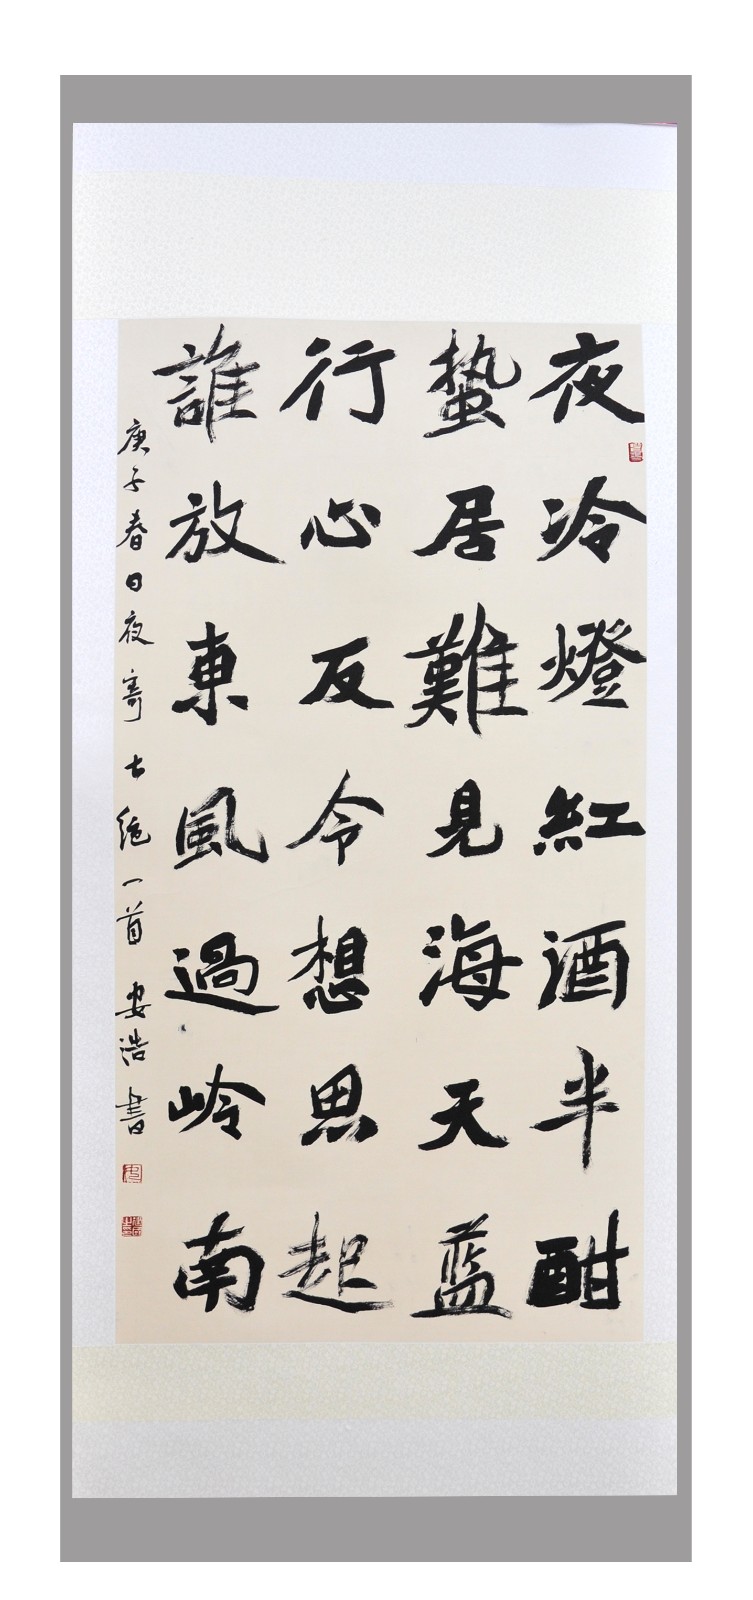 夜冷燈紅酒半酣
蛰居難見海天蓝
行心反令想思起
誰放東風過岭南
庚子春日夜寄七絕一首 安浩書